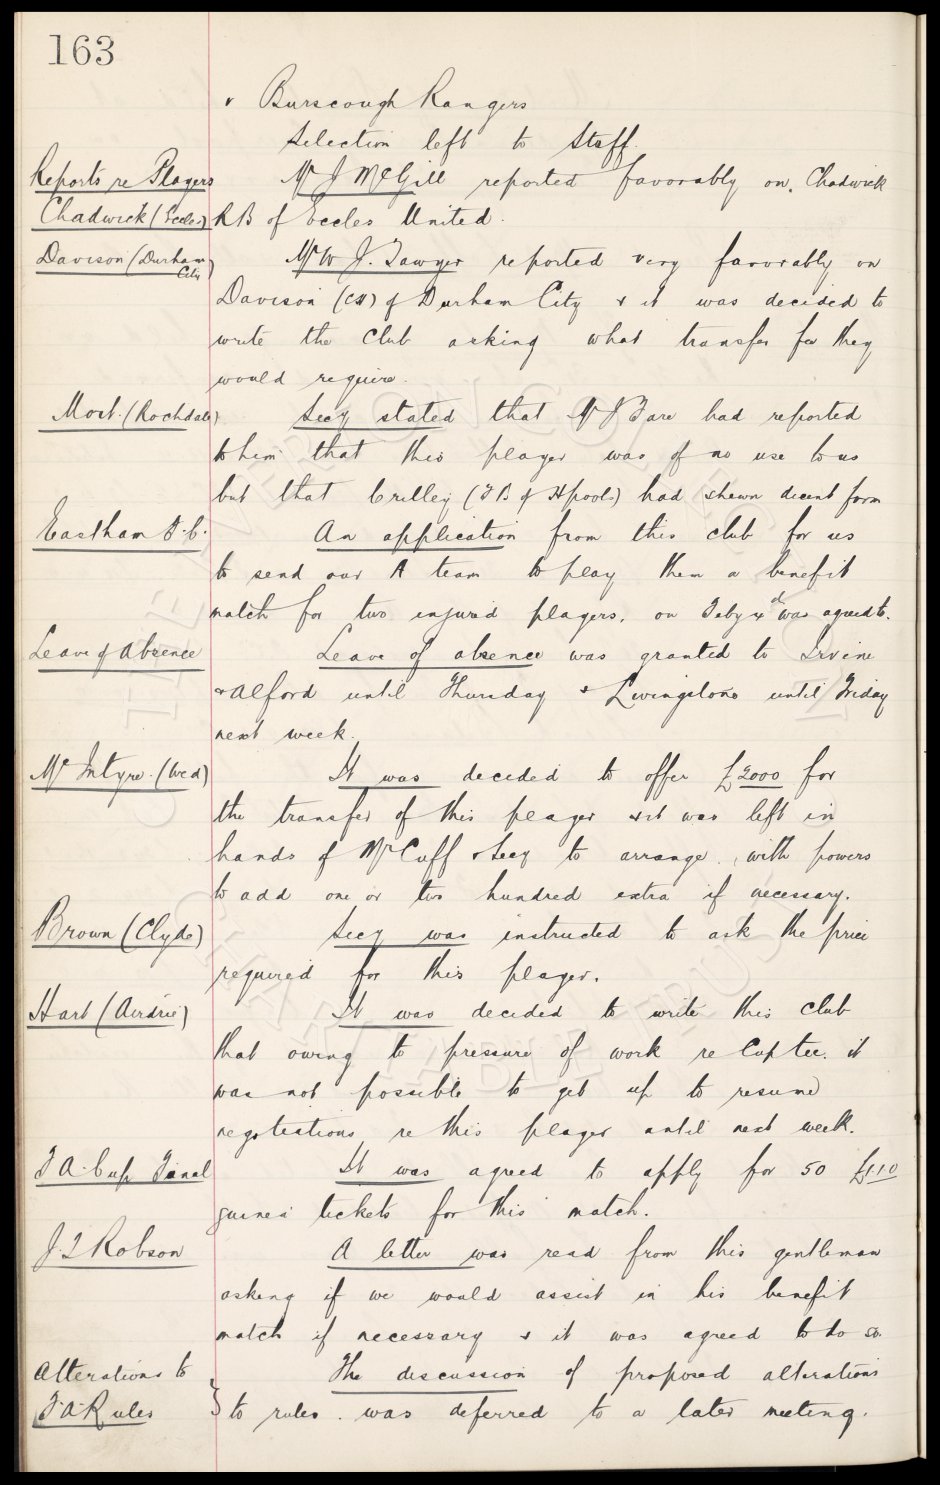 163
v Burscough Rangers
Selection left to Staff.
Reports re Players Mr J McGill reported favorably on, Chadwick
Chadwick (Eccles) RB of Eccles United.
Davison (Durham City) Mr W J. Sawyer reported very favorably on
Davison (CH) of Durham City & it was decided to
write the Club asking what transfer fee they
would require.
Mort. (Rochdale) Secy stated that Mr Bare had reported
to him that this player was of no use to us
but that Crilley (FB of Hpools) had shewn decent form
Eastham F.C. An application from this club for us
to send our A team to play them a benefit
match for two injured players, on Feby 4th was agreed to.
Leave of Absence Leave of absence was granted to Irvine
& Alford until Thursday & Livingstone until Friday
next week.
McIntyre. (Wed) It was decided to offer £2000 for
the transfer of this player & it was left in
hands of Mr Cuff & Secy to arrange, with powers
to add one or two hundred extra if necessary.
Brown (Clyde) Secy was instructed to ask the price
required for this player.
Hart (Airdrie) It was decided to write this club
that owing to pressure of work re Cup tee. it
was not possible to get up to resume
negotiations re this player until next week.
F A Cup Final It was agreed to apply for 50 £1.1.0
guinea tickets for this match.
J. T Robson A letter was read from this gentleman
asking if we would assist in his benefit
match if necessary & it was agreed to do so.
Alterations to The discussion of proposed alterations
F.A. Rules } to rules. was deferred to a later meeting.
THE EVERTON COLLECTION
CHARITABLE TRUST